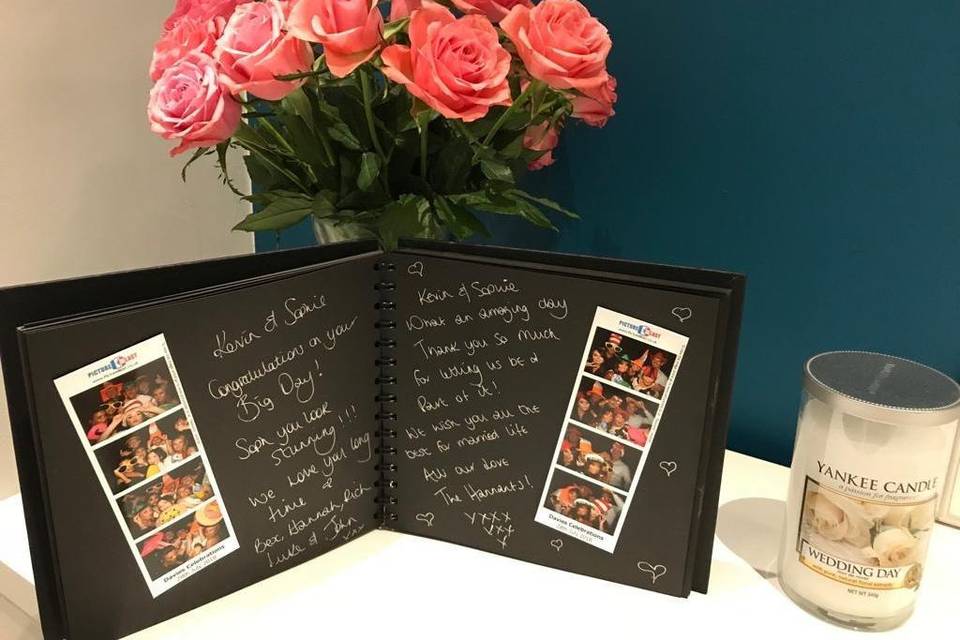 PICTURE BLAST
Kevin & Sophie
Congratulations on you
Big Day!
Soph you look
stunning!!!
We love you long
time
Bex, Hannah, Rich
Luke & John
xxx
Davies Celebrations
July 2018
Kevin & Sophie
What an amazing day
Thank you so much
for letting us be a
Part of it!
We wish you all the
best for married life
All our love
The Hannants!
xxxx
xxx
x
PICTURE BLAST
Davies Celebrations
July 2018
YANKEE CANDLE
a passion for fragrance
WEDDING DAY
NET WT